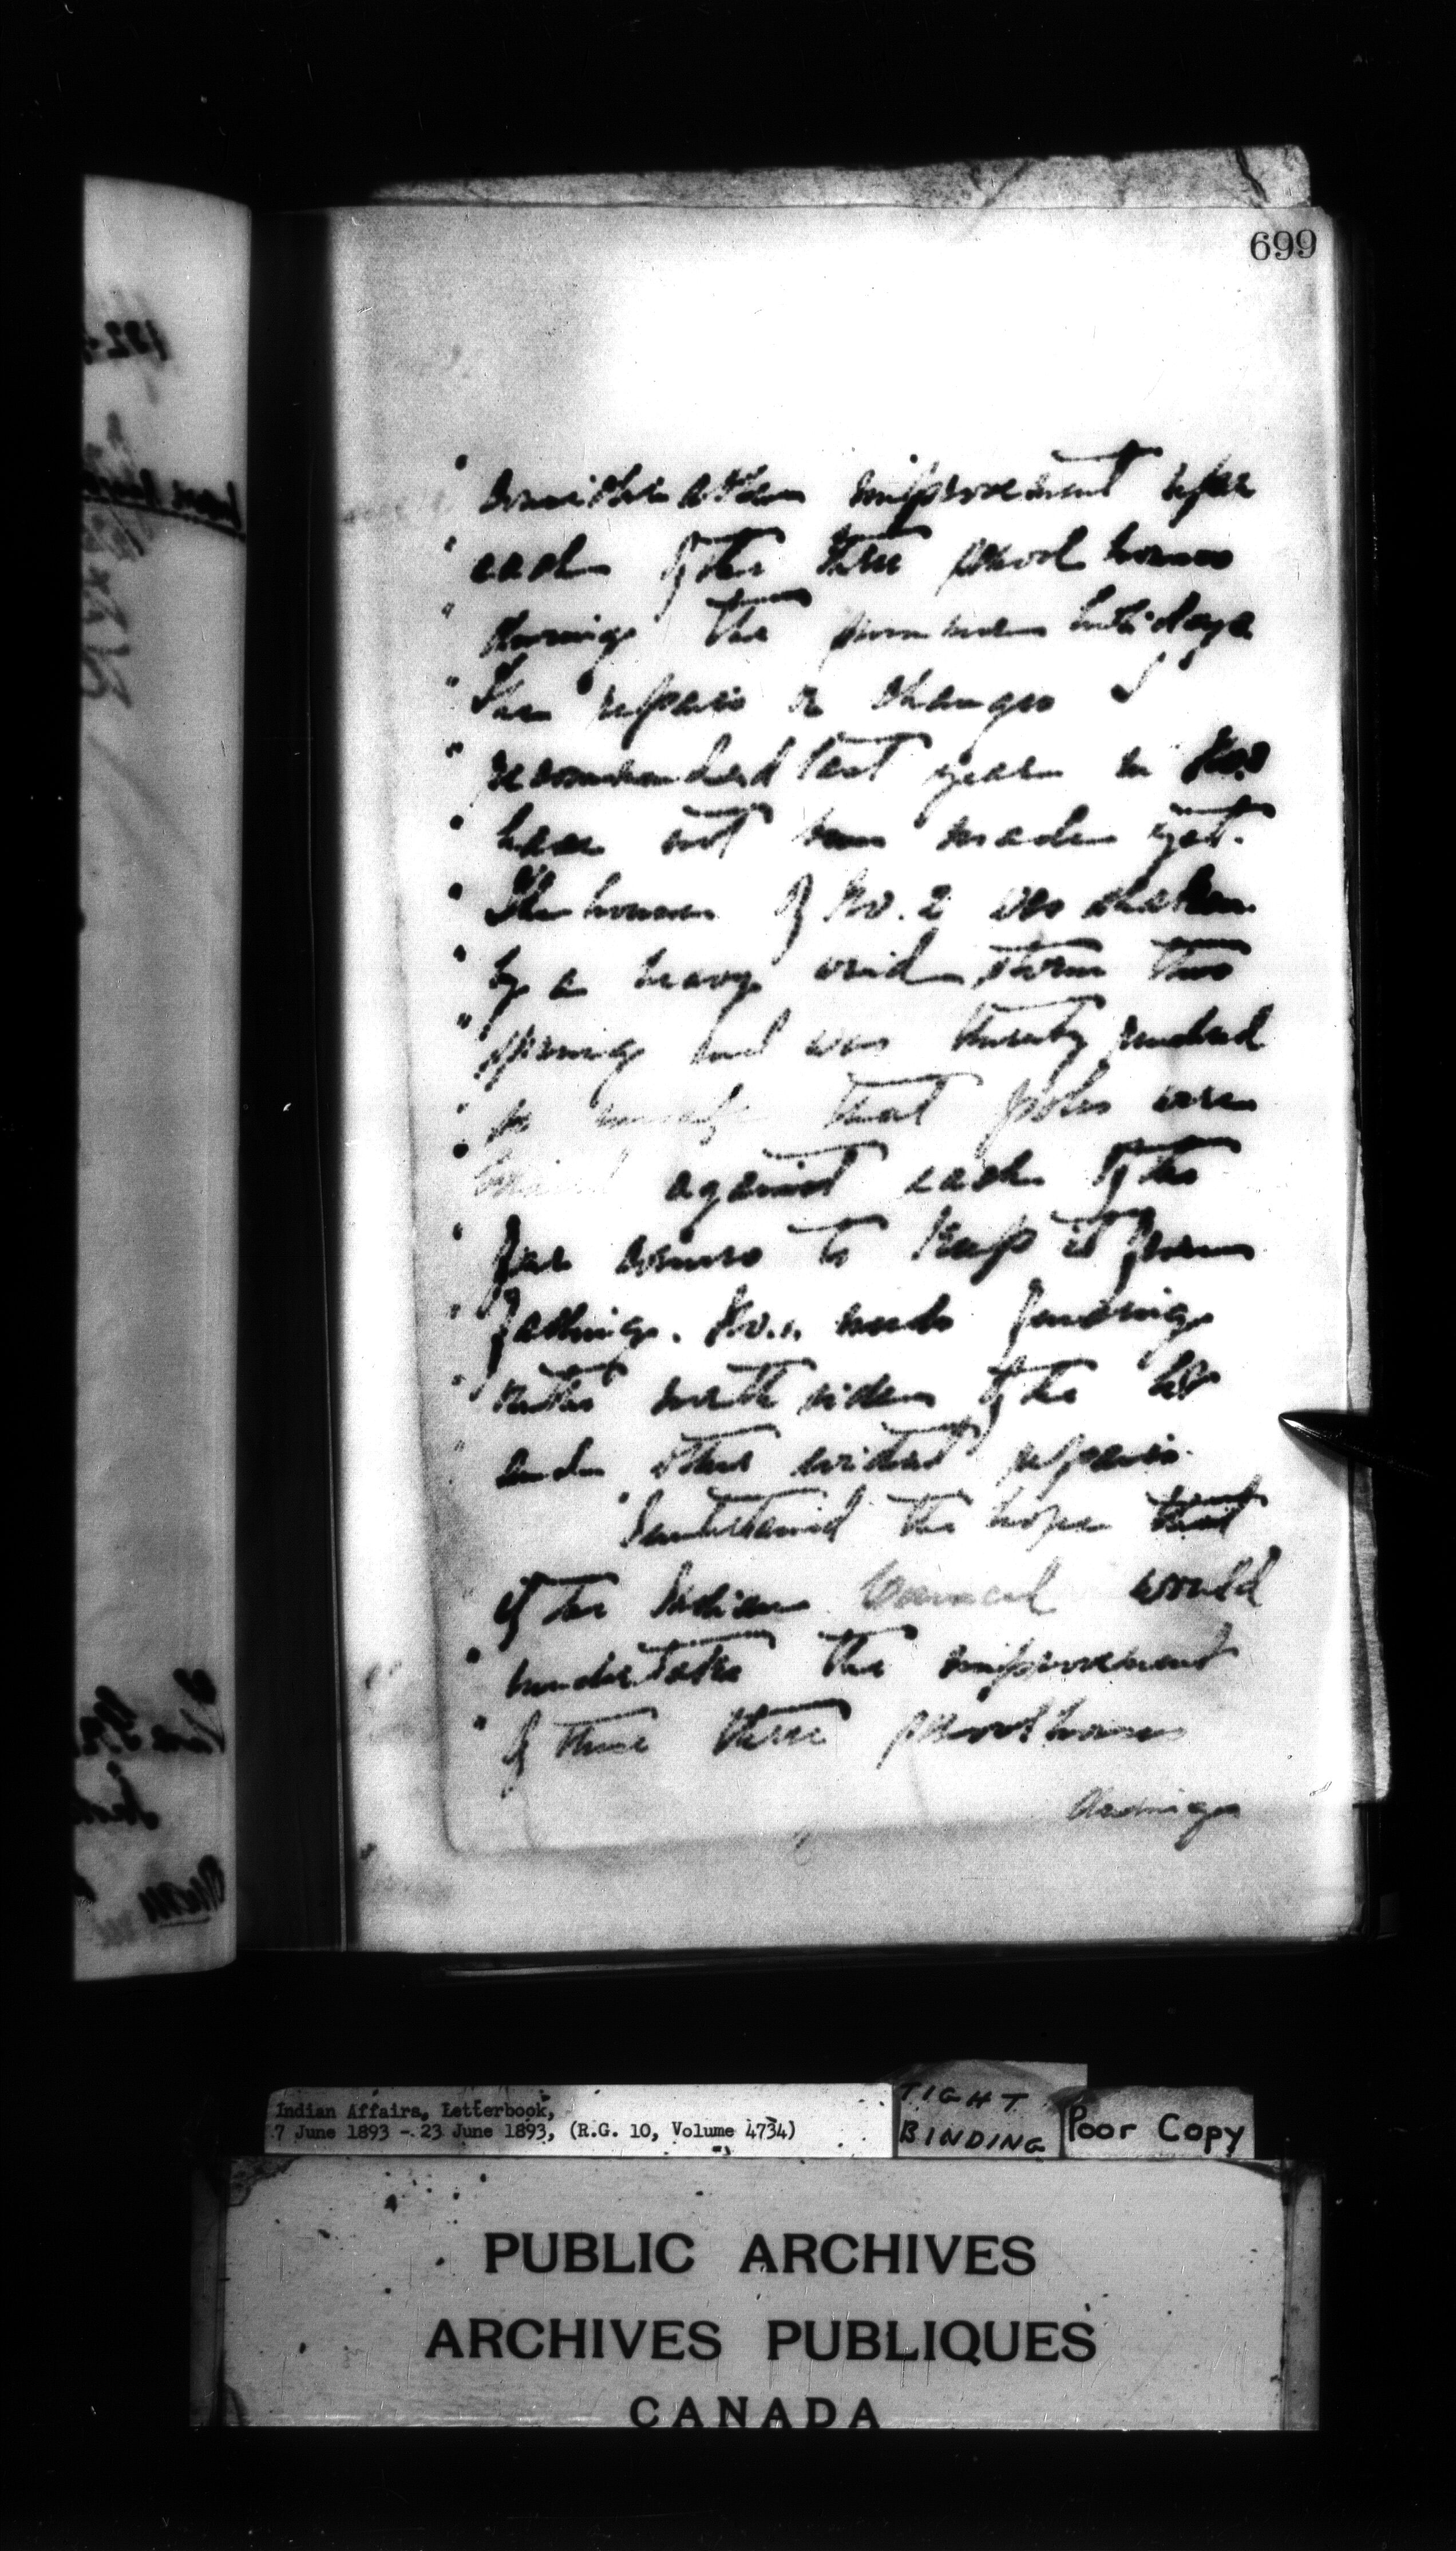 699
" improvement upon
" each of the three school houses
" during the summer holidays
" The repairs or changes I
" recommended last year in No.
" have not been made yet.
" The house of No. 2 was shaken
" by a heavy wind storm this
" spring and was thereby rendered
" so that poles were
" against each of the
" four corners to keep it from
" falling. No. 1. needs fencing
" on the north side of the lot
" and other evident repairs.
" I entertained the hope that
if the Indian Council would
" undertake the improvement
" of these three school houses
during
Indian Affairs, Letterbook,
7 June 1893 - 23 June 1893, (R.G. 10, Volume 4734)
TIGHT
BINDING
Poor Copy
PUBLIC ARCHIVES
ARCHIVES PUBLIQUES
CANADA